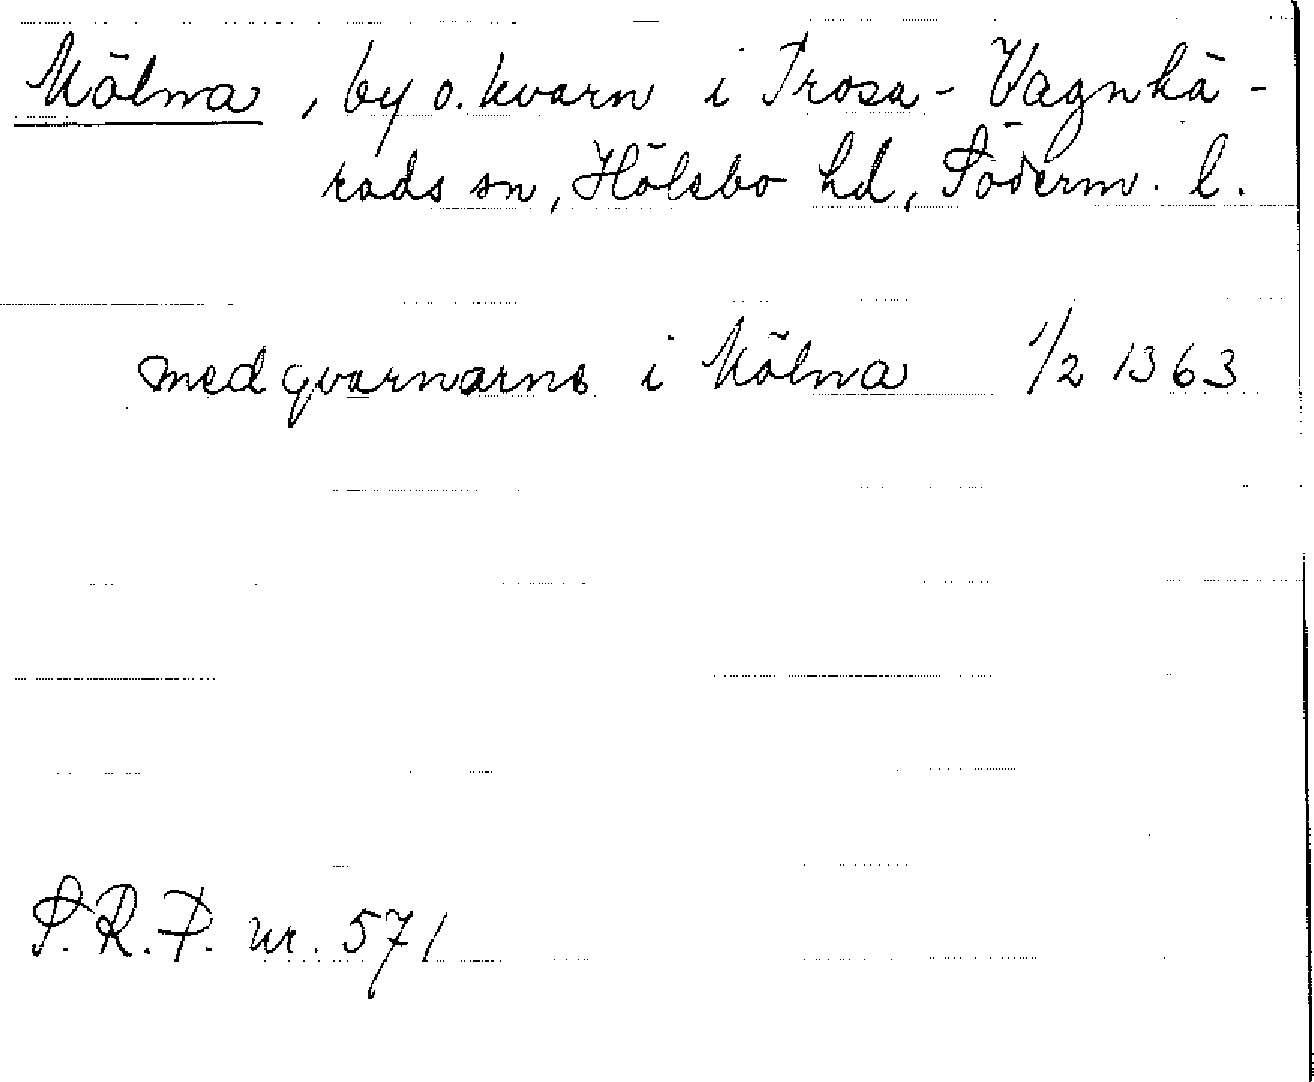 Mölna, by o. kvarn i Trosa-Vagnhä-
rads sn, Hölebo hd, Söderm. l.
med qvarnarne i Mölna 1/2 1363
S.R.P. nr. 571